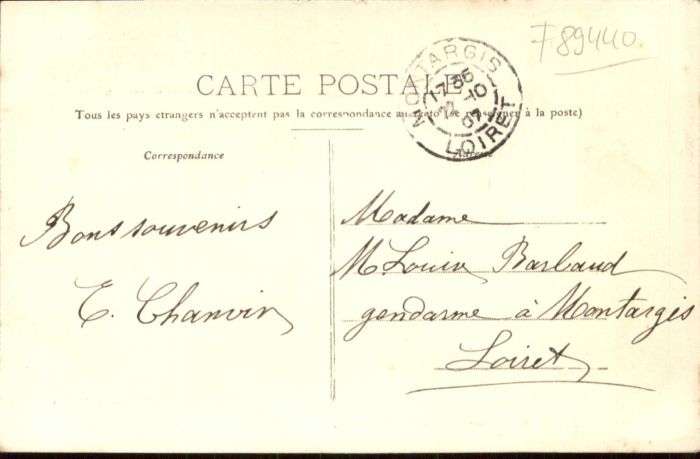 789440.
CARTE POSTALE
Tous les pays etrangers n'acceptent pas la correspondance au recto (se renseigner à la poste)
MONTARGIS
17 35
10
07
LOIRET
Correspondance
Adresse
Bons souvenirs
E. Chanvin
Madame
M Louis Barbaud
gendarme à Montargis
Loiret